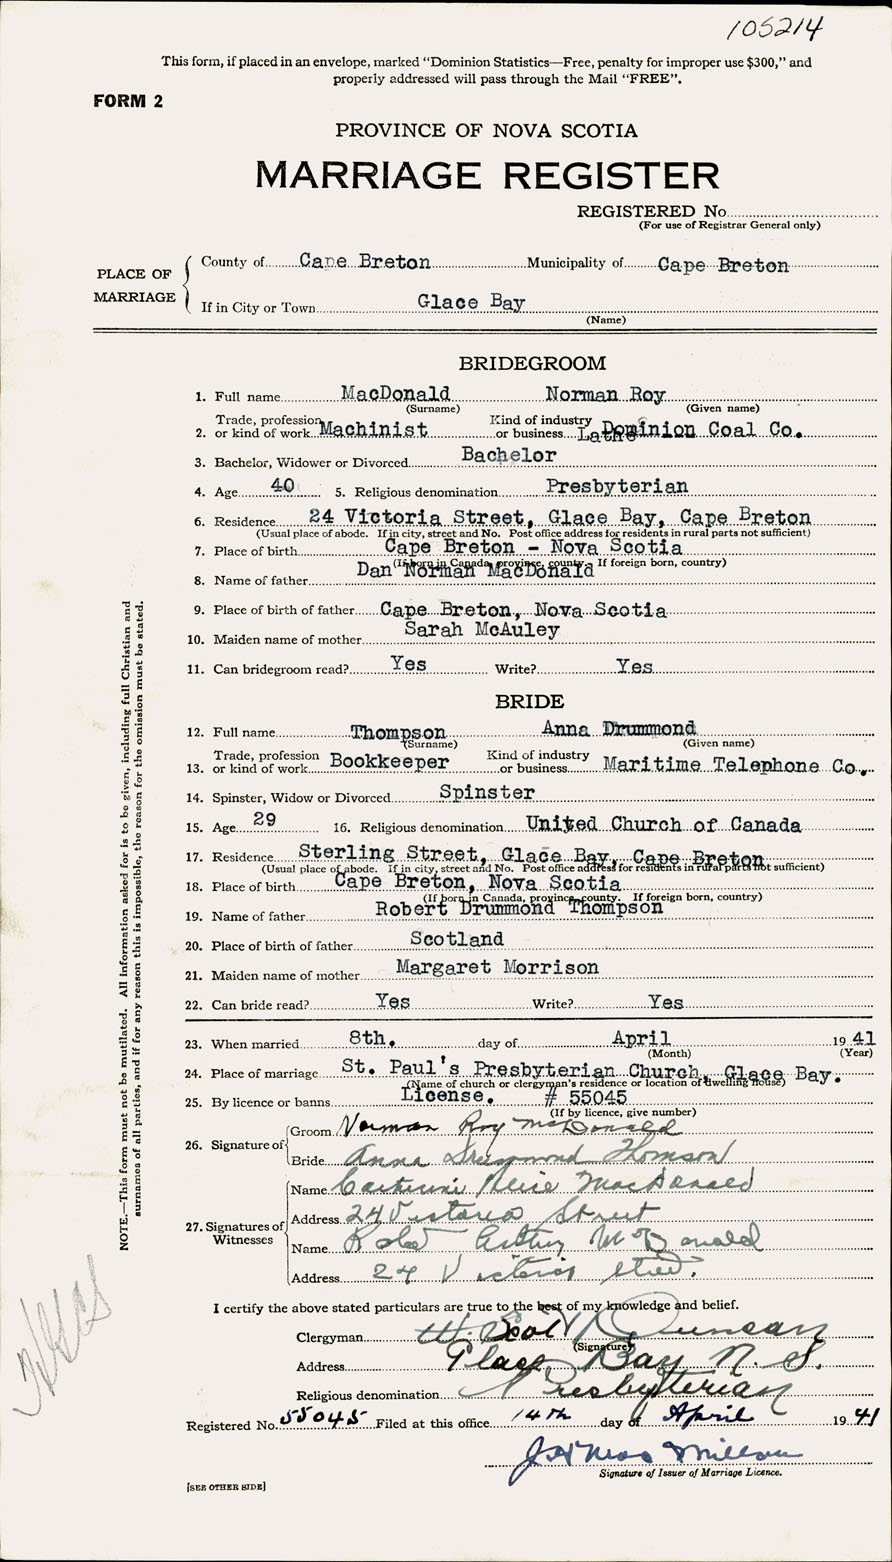 105214
This form, if placed in an envelope, marked "Dominion Statistics—Free, penalty for improper use $300," and
properly addressed will pass through the Mail "FREE".
FORM 2
PROVINCE OF NOVA SCOTIA
MARRIAGE REGISTER
REGISTERED No.
(For use of Registrar General only)
PLACE OF MARRIAGE
County of Cape Breton Municipality of Cape Breton
If in City or Town Glace Bay
(Name)
BRIDEGROOM
1. Full name MacDonald Norman Roy
(Surname) (Given name)
2. Trade, profession or kind of work Machinist Kind of industry or business Lathe Dominion Coal Co.
3. Bachelor, Widower or Divorced Bachelor
4. Age 40 5. Religious denomination Presbyterian
6. Residence 24 Victoria Street, Glace Bay, Cape Breton
(Usual place of abode. If in city, street and No. Post office address for residents in rural parts not sufficient)
7. Place of birth Cape Breton - Nova Scotia
(If born in Canada, province, county. If foreign born, country)
8. Name of father Dan Norman MacDonald
9. Place of birth of father Cape Breton, Nova Scotia
10. Maiden name of mother Sarah McAuley
11. Can bridegroom read? Yes Write? Yes
BRIDE
12. Full name Thompson Anna Drummond
(Surname) (Given name)
13. Trade, profession or kind of work Bookkeeper Kind of industry or business Maritime Telephone Co.
14. Spinster, Widow or Divorced Spinster
15. Age 29 16. Religious denomination United Church of Canada
17. Residence Sterling Street, Glace Bay, Cape Breton
(Usual place of abode. If in city, street and No. Post office address for residents in rural parts not sufficient)
18. Place of birth Cape Breton, Nova Scotia
(If born in Canada, province, county. If foreign born, country)
19. Name of father Robert Drummond Thompson
20. Place of birth of father Scotland
21. Maiden name of mother Margaret Morrison
22. Can bride read? Yes Write? Yes
23. When married 8th. day of April 19 41
(Month) (Year)
24. Place of marriage St. Paul's Presbyterian Church, Glace Bay.
(Name of church or clergyman's residence or location of dwelling house)
25. By licence or banns License. # 55045
(If by licence, give number)
26. Signature of
Groom Norman Roy MacDonald
Bride Anna Drummond Thomson
27. Signatures of Witnesses
Name Catherine MacDonald
Address 24 Victoria Street
Name Robt Arthur McDonald
Address 24 Victoria Street.
I certify the above stated particulars are true to the best of my knowledge and belief.
Clergyman W. Scott Duncan
(Signature)
Address Glace Bay N. S.
Religious denomination Presbyterian
Registered No. 55045 Filed at this office 14th day of April 19 41
Signature of Issuer of Marriage Licence.
[SEE OTHER SIDE]
NOTE.—This form must not be mutilated. All information asked for is to be given, including full Christian and
surnames of all parties, and if for any reason this is impossible, the reason for the omission must be stated.